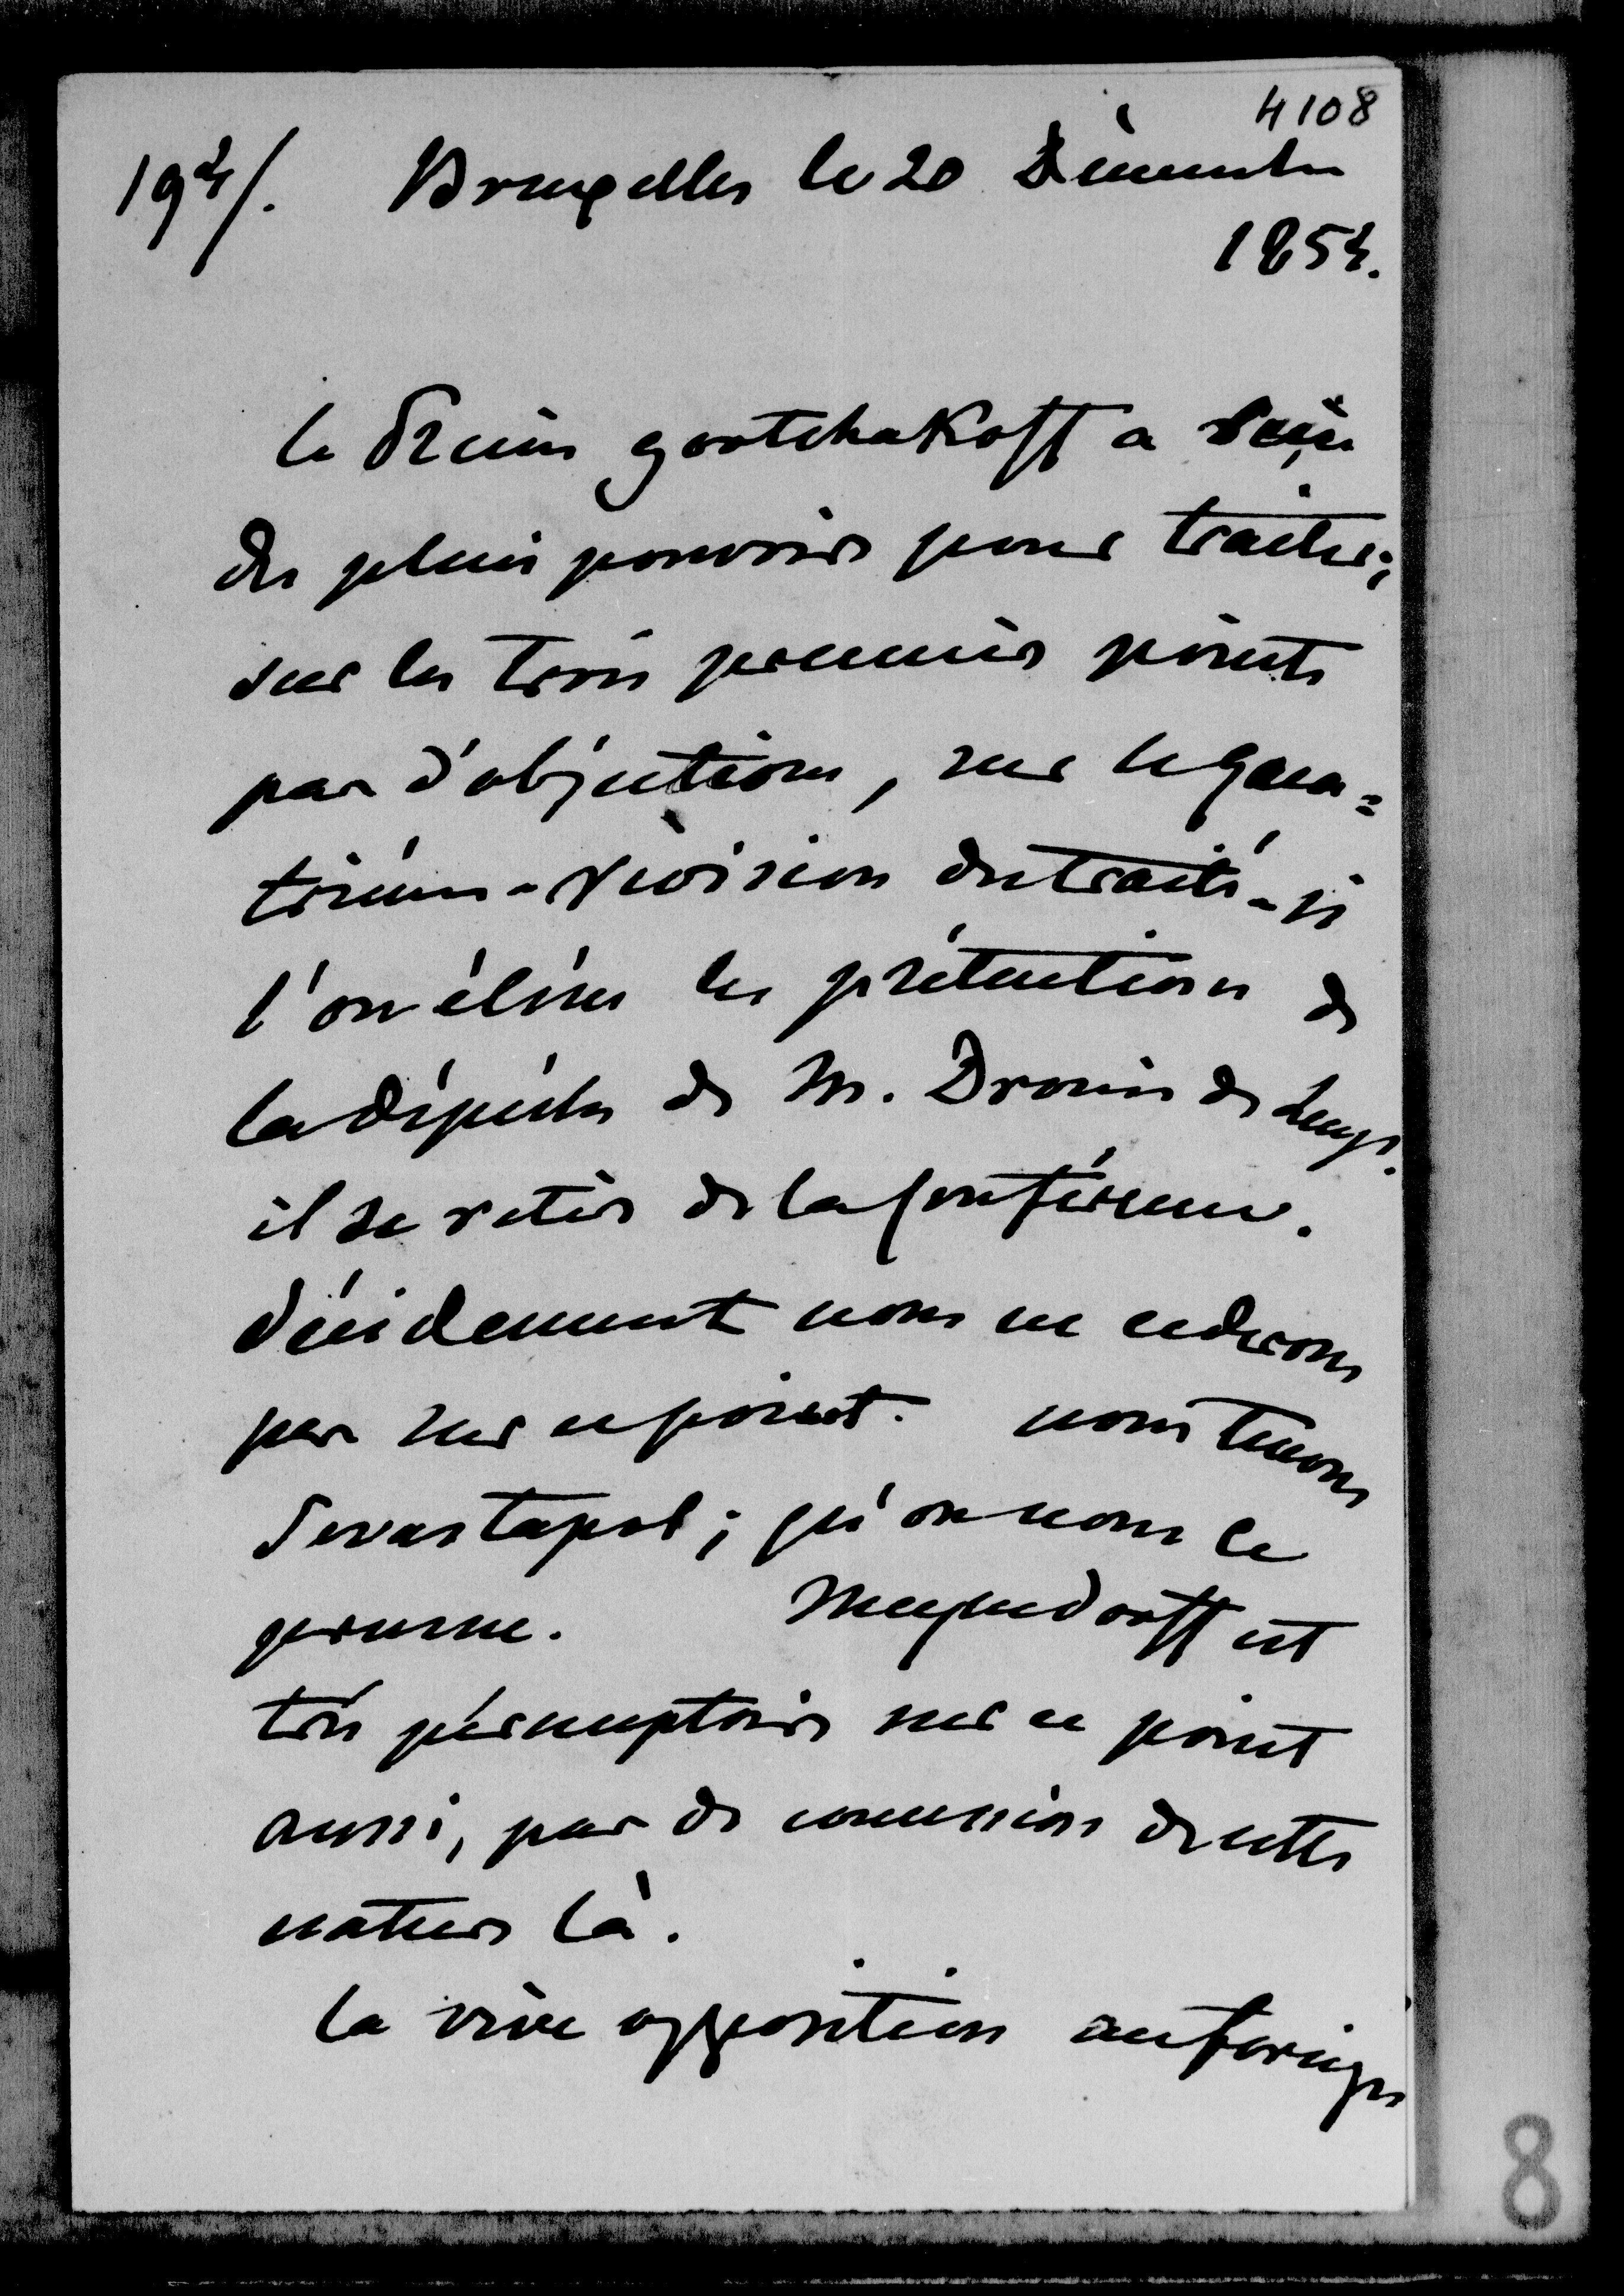 4108
194/. Bruxelles le 20 Décembre
1854.
le Prince Gortchakoff a reçu
des pleins pouvoirs pour traiter;
sur les trois premiers points
pas d'objections, sur le qua=
trième - révision du traité - si
l'on élève les prétentions de
la dépêche de M. Drouin de Lhuys.
il se retire de la conférence.
décidemment nous ne cederons
pas sur ce point. nous tenons
Sevastopol ; qu'on nous le
prenne. Meyendorff est
très péremptoire sur ce point
aussi, pas de concession de cette
nature là.
la vive opposition au foreign
8